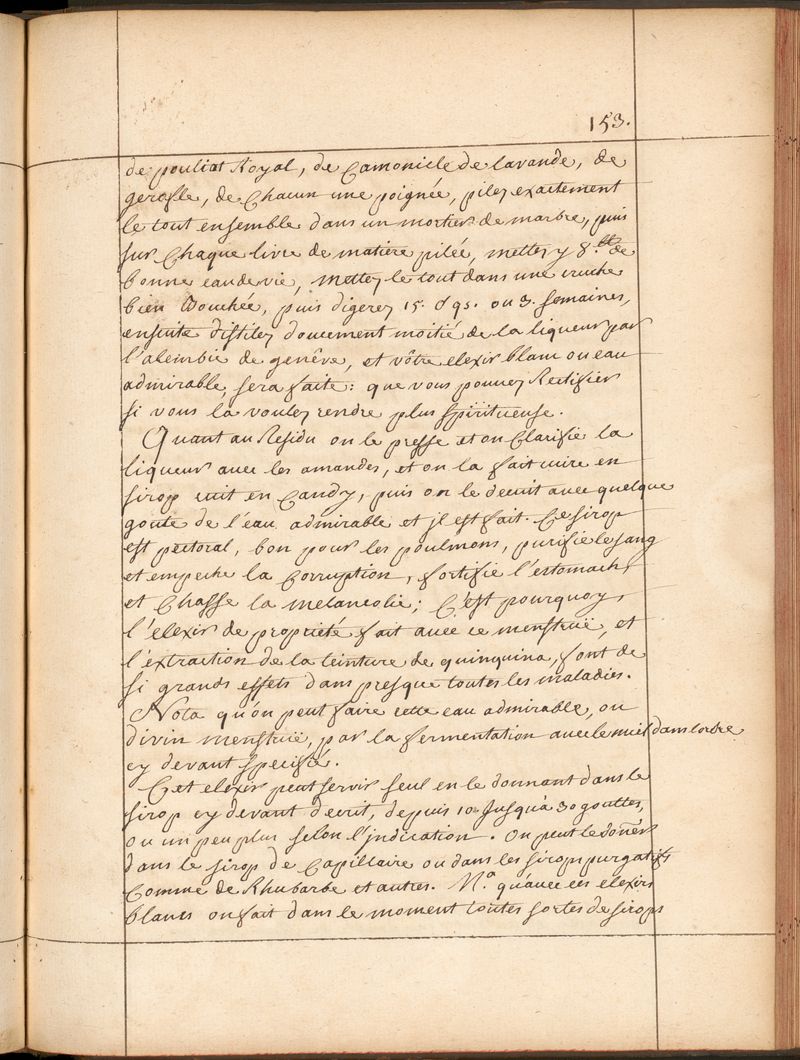 153.
de pouliot Royal, de Camomiele de lavande, de
gerofle, de Chacun une poignée, pilez exactement
le tout ensemble dans un mortier de marbre, puis
sur Chaque livre de matiere pilée, mettez y 8. lt de
bonne eau de vie, Mettez le tout dans une cruche
bien Bouchée, puis digerez 15. j.rs ou 3. semaines,
ensuite distilez doucement moitié de la liqueur par
l'alembic de genêve, et vôtre elexir blanc ou eau
admirable, sera faite: que vous pouvez Rectifier
si vous la voulez rendre plus spiritueuse.
Quant au Residu on le presse et on Clarifie la
liqueur avec les amandes, et on la fait cuire en
sirop cuit en Candy, puis on le decuit avec quelque
goute de l'eau admirable et jl est fait. Ce sirop
est pectoral, bon pour les poulmons, purifie le sang
et empeche la Corruption, fortifie l'estomach,
et Chasse la melancolie; C'est pourquoy,
l'elexir de propriété fait avec ce menstruë, et
l'extraction de la teinture de quinquina, font de
si grands effets dans presque toutes les maladies.
Nota qu'on peut faire cette eau admirable, ou
divin menstruë, par la fermentation avec le miel dans l'ordre
cy devant specifié.
Cet elexir peut servir seul en le donnant dans le
sirop cy devant decrit, depuis 10 Jusqu'à 30 gouttes,
ou un peu plus selon l'jndication. On peut le doñer
dans le sirop de Capillaire ou dans les sirops purgatifs
Comme de Rhubarbe et autres. N.a qu'avec ces elexirs
blancs on fait dans le moment toutes sortes de sirops